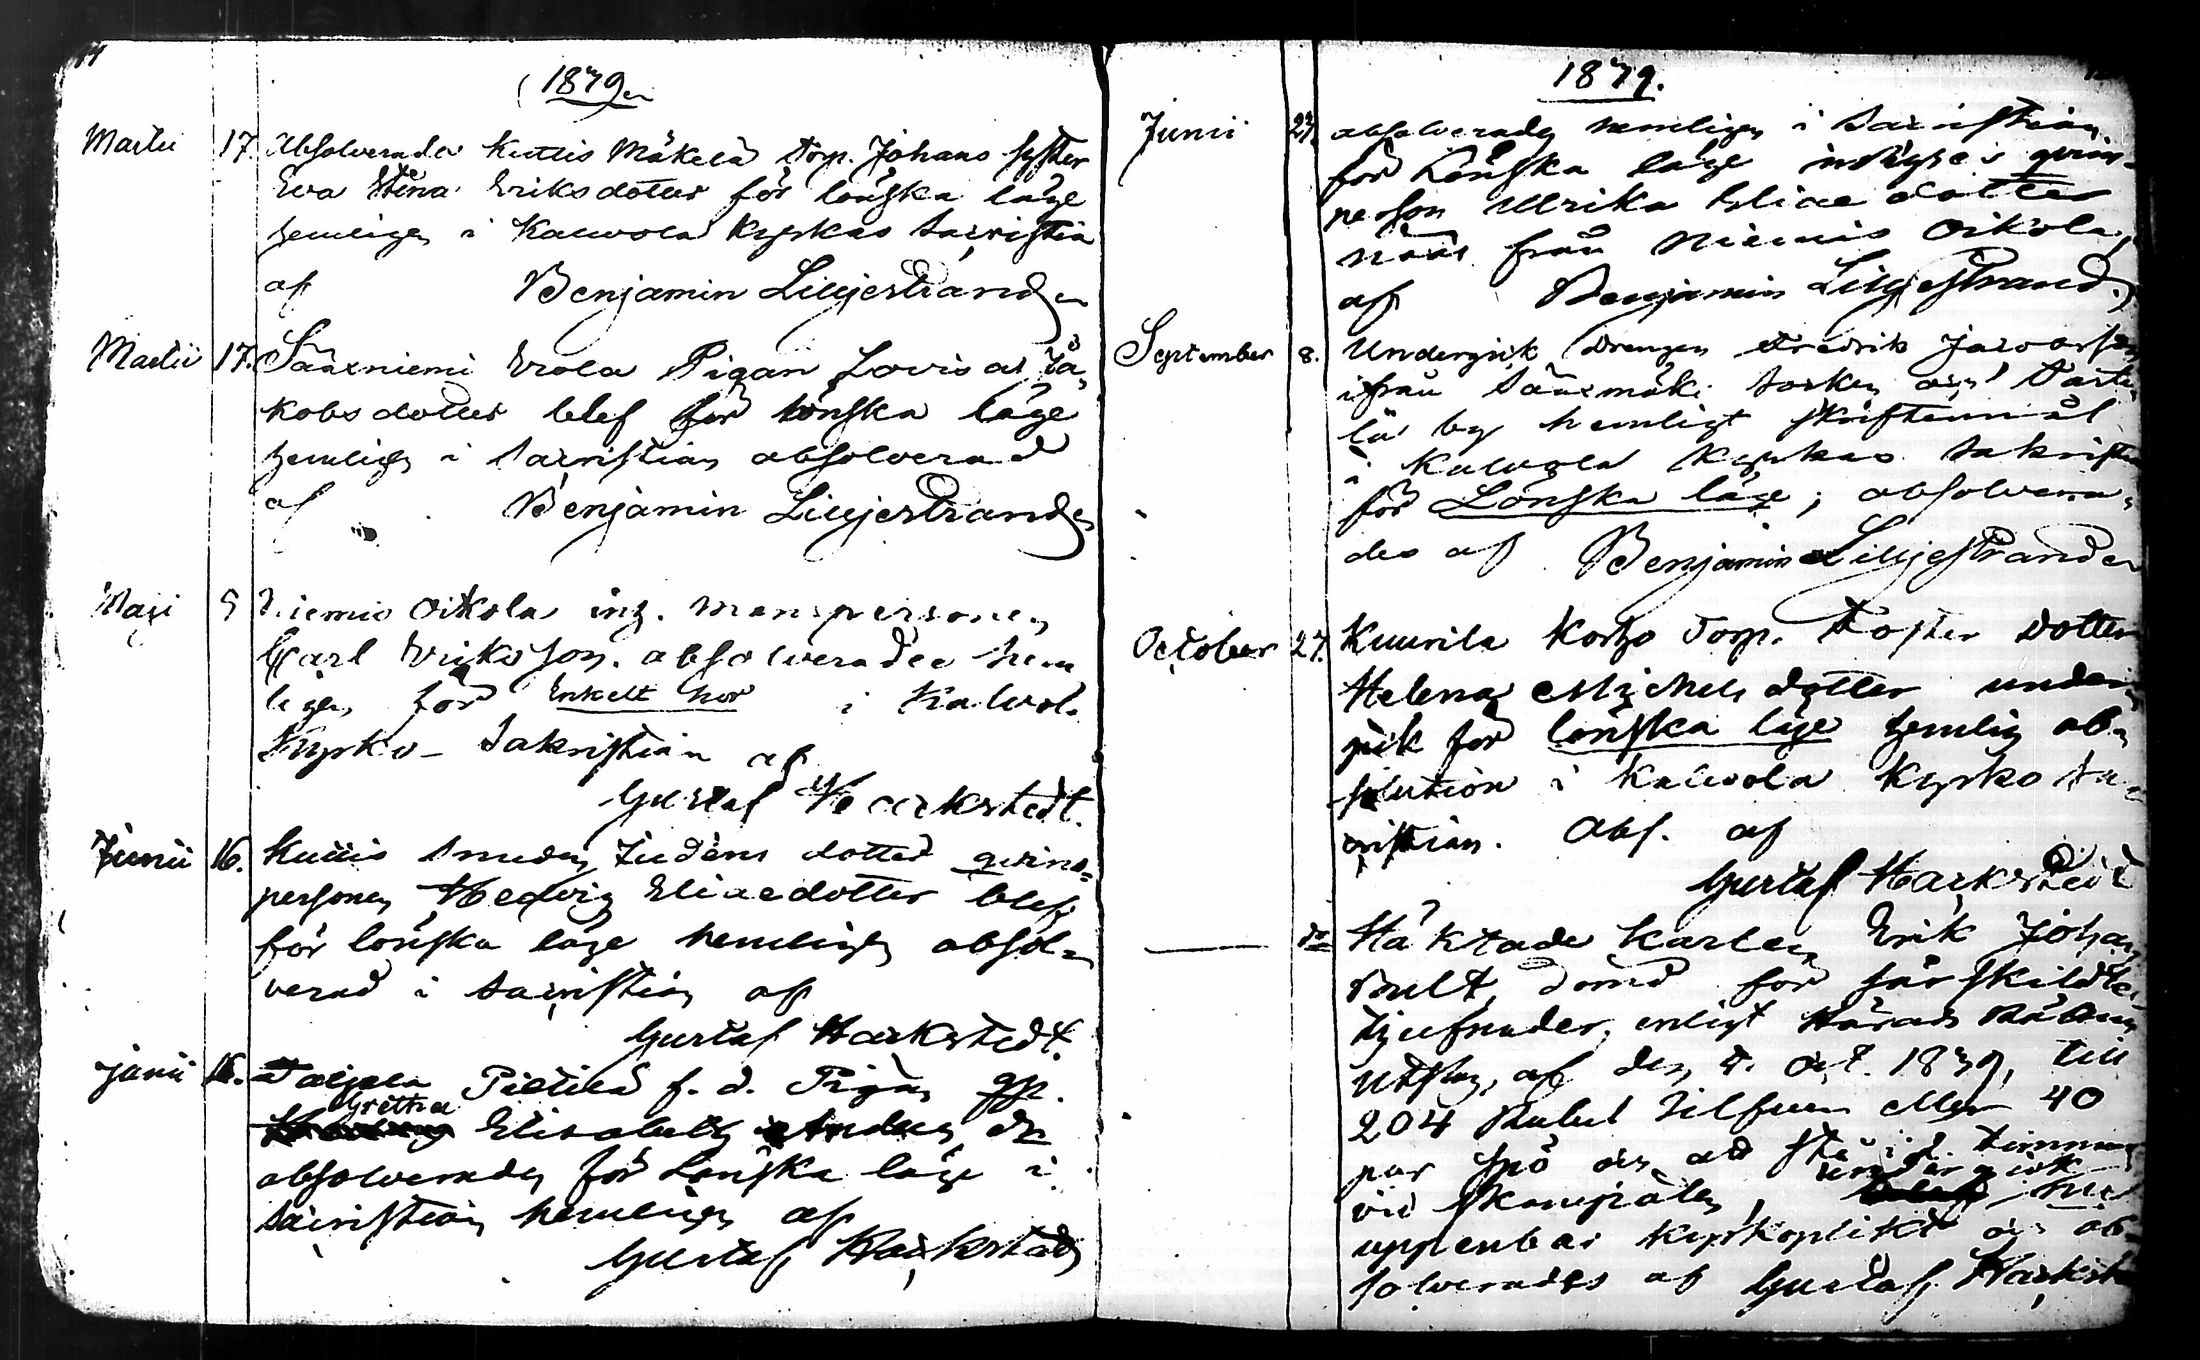 1839.
Martii 17. Absolverades Kutlis Mäkelä Torp. Johans Syster
Eva Stina Eriksdotter för lönska läge
hemligen i Kalvola Kyrkas Sacristia
af Benjamin Liljestrand
Martii 17. Sääxniemi Erola Pigan Lovisa Ja-
kobsdotter blef för lönska läge
hemligen i Sacristian absolverad
af Benjamin Liljestrand
Maji 5 Niemis Oikola inh. Manspersonen
Carl Eriksson absolverades hem
ligen för Enkelt hor i Kalvol.
Kyrko-Sakristian af
Gustaf Harkstedt.
Junii 16. dotter qvins-
personen Hedvig Eliaedotter blef
för lönska läge hemligen absol-
verad i Sacristian af
Gustaf Harkstedt.
Junii 16. Pietilä f. d. Pigan
Gretha
Elisabeth Anders dr
absolverades för Lönska läge i
Sacristian hemligen af
Gustaf Harkstedt
1839.
Junii 27. absolverades hemligen i Sacristian
för Lönska läge qvins-
person Ulrika Eliae dotter
från Niemis Oikola,
af Benjamin Liljestrand.
September 8. Undergick Drengen Fredrik
ifrån Sääxmäki Socken och
lä by hemligt skriftermål
i Kalvola Kyrkas Sakristia
för Lönska läge; absolvera-
des af Benjamin Liljestrand
October 27. Kuurila Torp. Foster dotter
Helena Michels dotter under
gick för lönska läge hemlig ab-
solution i Kalvola Kyrko Sa-
cristian. Abs. af
Gustaf Harkstedt
do Häktade Karlen Erik Johan
dömd för särskildte
tjufnader, enligt Härads Rättens
Utslag af den 4. Oct. 1839, till
204 Rubel Silfver eller 40
par spö och att stå i d. timme
vid skampålen, undergick
uppenbar kyrkoplikt och ab-
solverades af Gustaf Harkst